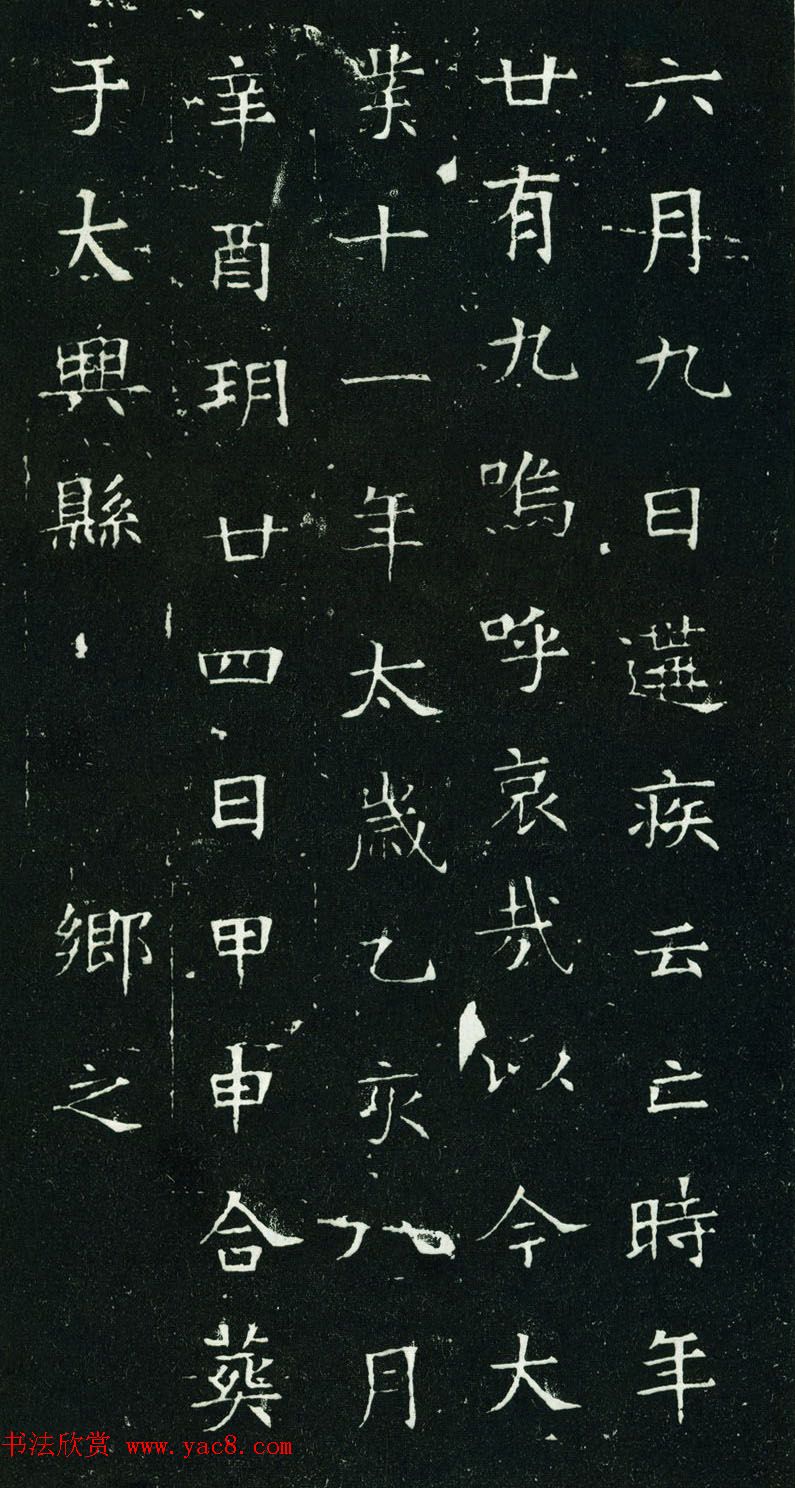 六月九日遘疾云亡時年
廿有九嗚呼哀哉以今大
業十一年太歲乙亥八月
辛酉朔廿四日甲申合葬
于大興縣　鄉之
书法欣赏 www.yac8.com